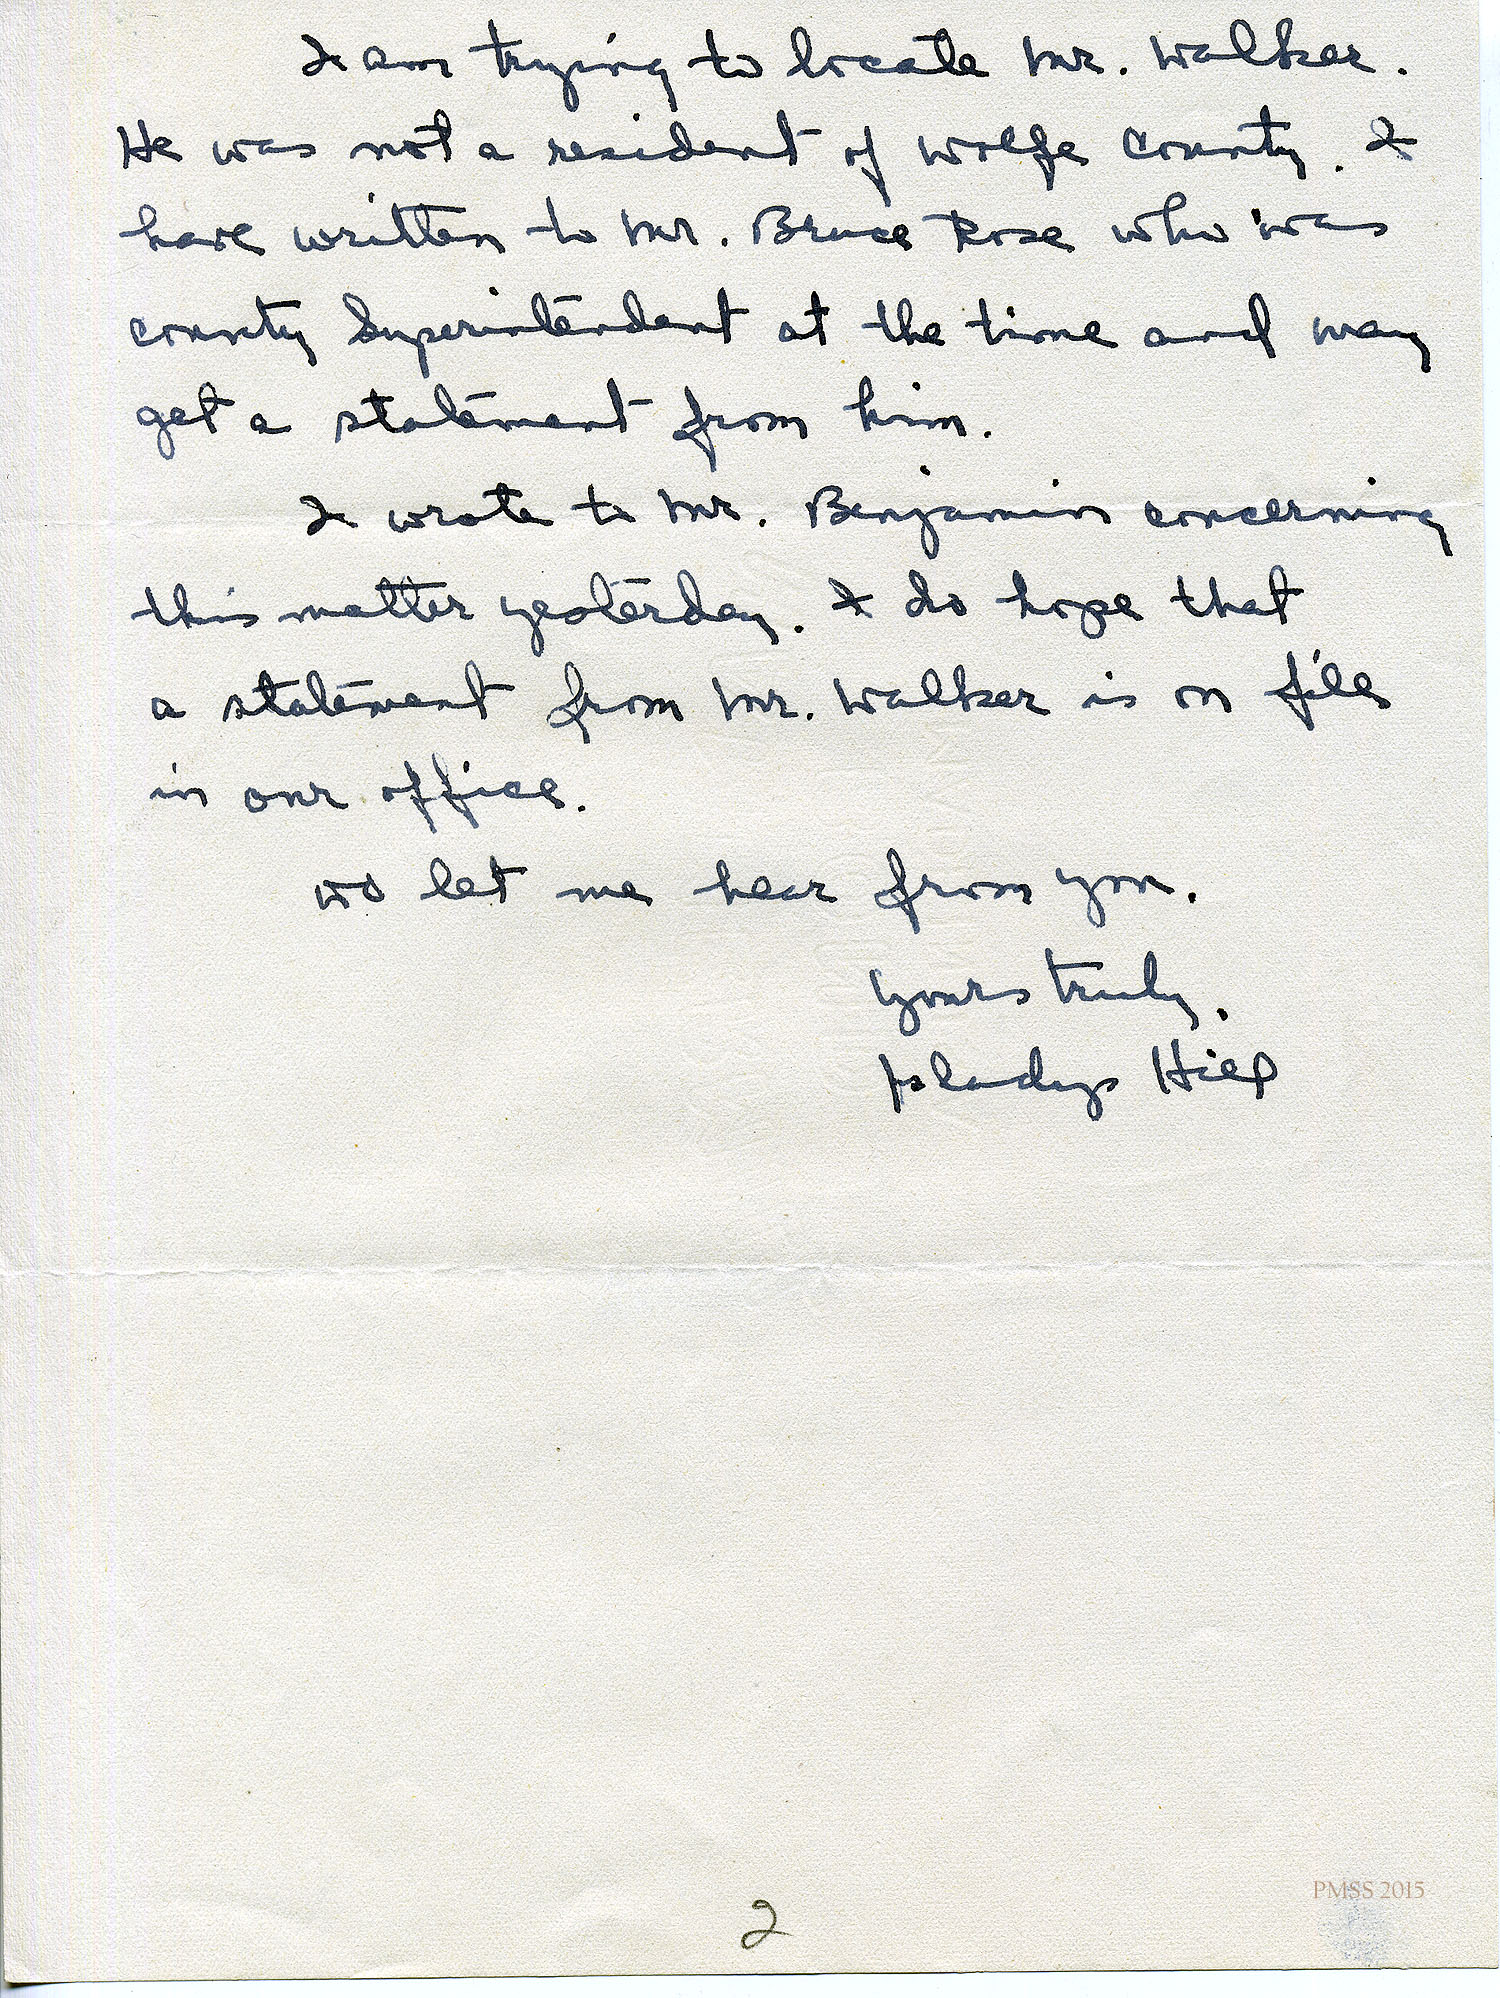 I am trying to locate Mr. Walker.
He was not a resident of Wolfe County. I
have written to Mr. Bruce Rose who was
county Superintendent at the time and may
get a statement from him.
I wrote to Mr. Benjamin concerning
this matter yesterday. I do hope that
a statement from Mr. Walker is on file
in our office.
Do let me hear from you.
Yours truly,
Gladys Hill
2
PMSS 2015